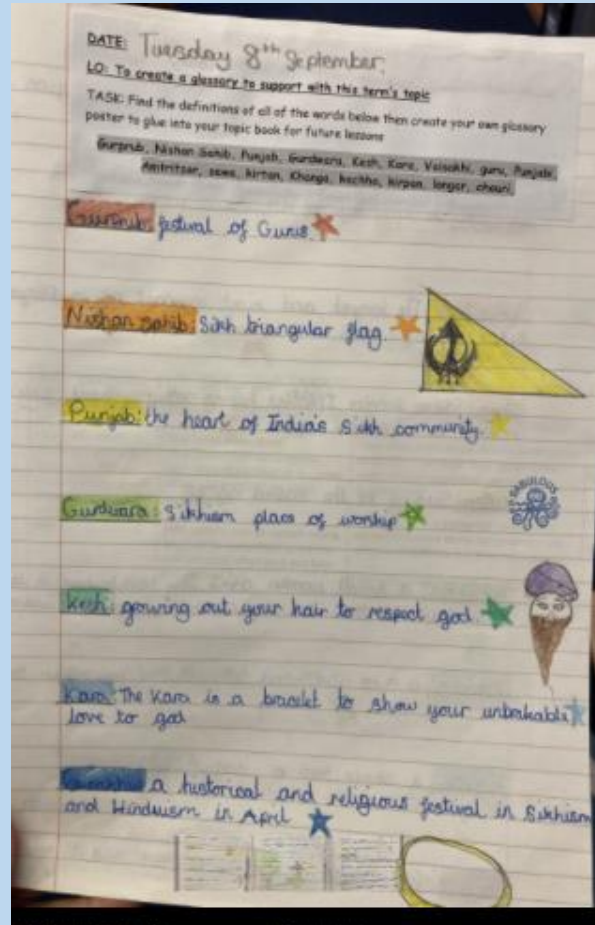 DATE: Tuesday 8th September.
LO: To create a glossary to support with this term's topic
TASK: Find the definitions of all of the words below then create your own glossary
poster to glue into your topic book for future lessons
Gurprub, Nishan Sahib, Punjab, Gurdwara, Kesh, Kara, Vaisakhi, guru, Punjabi,
Amtritsar, sewa, kirtan, Khanga, kachha, kirpan, langar, chauri,
Gurprub: festival of Gurus.
Nishan sahib: Sikh triangular flag.
Punjab: the heart of India's Sikh community.
FABULOUS
Gurdwara: Sikhism place of worship
Kesh: growing out your hair to respect god
Kara: The Kara is a bracelet to show your unbrakable
love to god
a historical and religious festival in Sikhism
and Hinduism in April